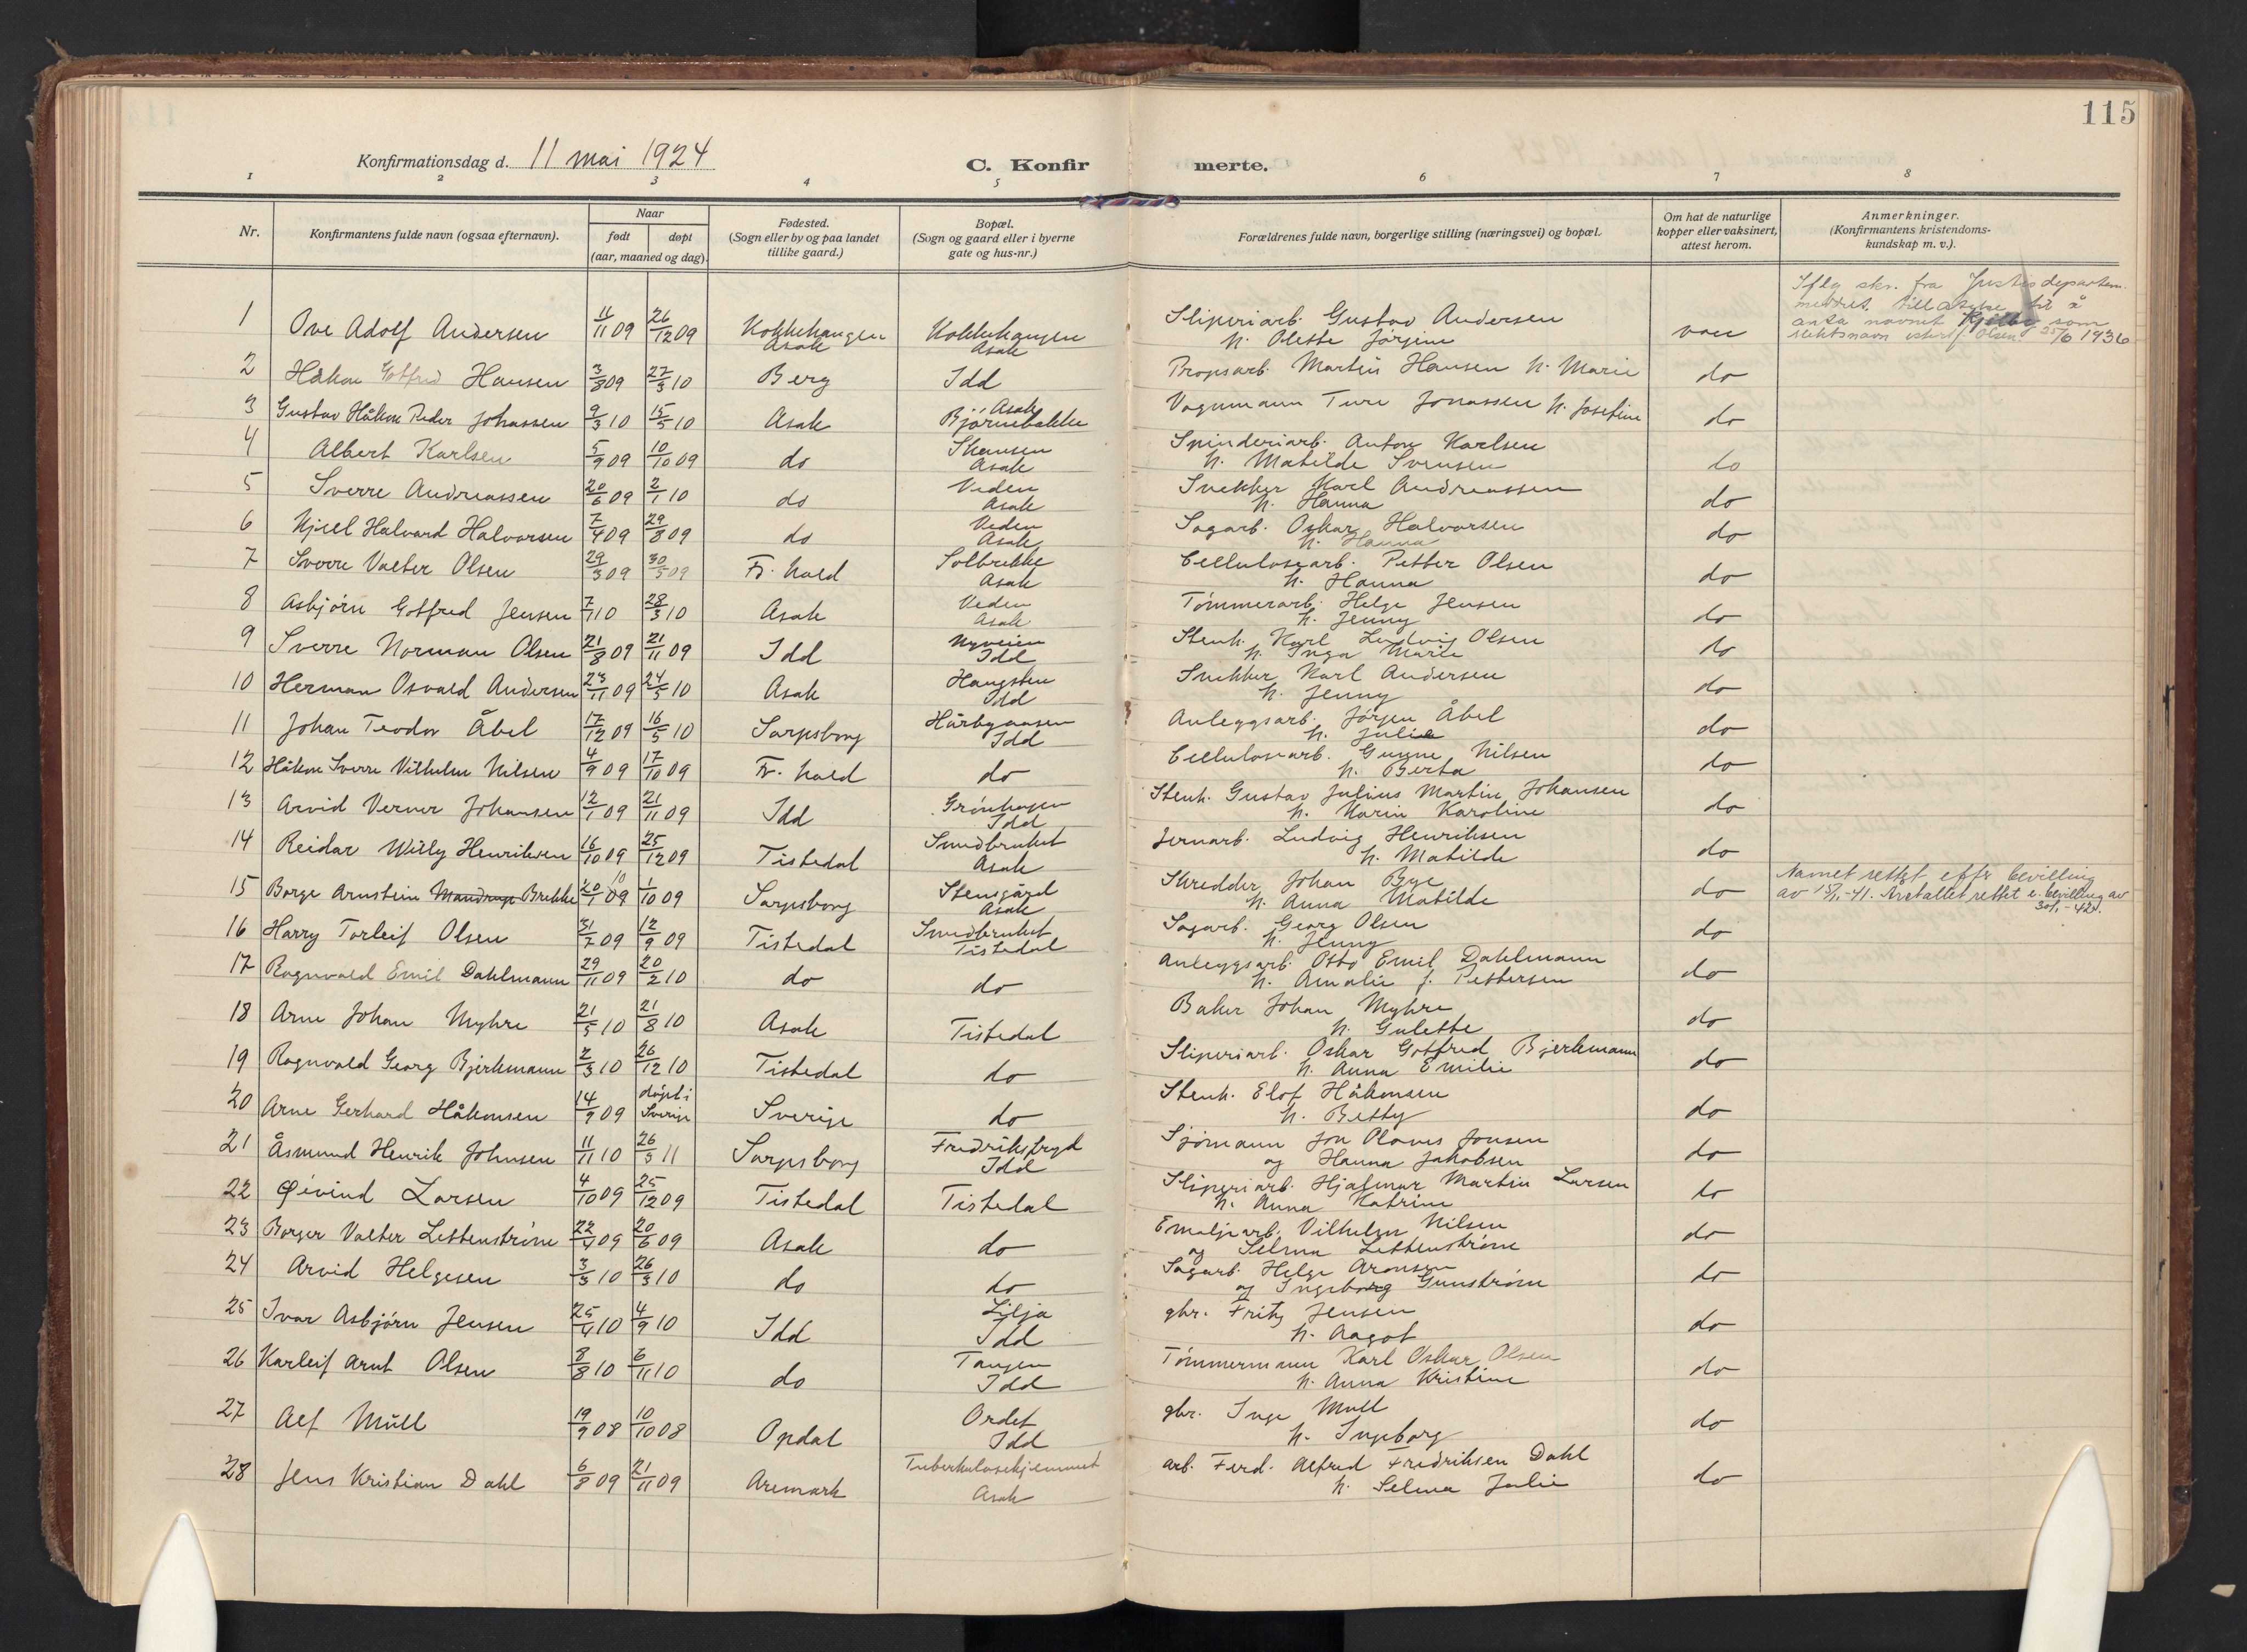 115
Konfirmationsdag d. 11 mai 1924
C. Konfir merte.
1 2 3 4 5 6 7 8
Nr.
Konfirmantens fulde navn (ogsaa efternavn).
Naar
født døpt
(aar, maaned og dag).
Fødested.
(Sogn eller by og paa landet
tillike gaard.)
Bopæl.
(Sogn og gaard eller i byerne
gate og hus-nr.)
Forældrenes fulde navn, borgerlige stilling (næringsvei) og bopæl.
Om hat de naturlige
kopper eller vaksinert,
attest herom.
Anmerkninger.
(Konfirmantens kristendoms-
kundskap m. v.).
1 Ove Adolf Andersen 11/11 09 26/12 09 Kokkehaugen Asak Kokkehaugen Asak Sliperiarb. Gustav Andersen h. Olette Jørgine vacc
Iflg skr. fra Justisdepartem.
meddelt tillatelse til å
anta navnet som
slektsnavn istedf. Olsen 25/6 1936
2 Håkon Gotfred Hansen 3/8 09 27/3 10 Berg Idd Propsarb. Martin Hansen h. Marie do
3 Gustav Håkon Peder Johnssen 9/3 10 15/5 10 Asak Asak Bjørnebakke Vognmann Ture Jonassen h. Josefine do
4 Albert Karlsen 5/9 09 10/10 09 do Skansen Asak Spinderiarb. Anton Karlsen h. Matilde Svensen do
5 Sverre Andreassen 20/6 09 2/1 10 do Veden Asak Snekker Karl Andreassen h. Hanna do
6 Kjell Halvard Halvorsen 7/4 09 29/8 09 do Veden Asak Sagarb. Oskar Halvorsen h. Hanna do
7 Sverre Valter Olsen 29/3 09 30/5 09 Fr. hald Solbrekke Asak Cellulosearb. Petter Olsen h. Hanna do
8 Asbjørn Gotfred Jensen 7/1 10 28/3 10 Asak Veden Asak Tømmerarb. Helge Jensen h. Jenny do
9 Sverre Norman Olsen 21/8 09 21/11 09 Idd Nyveien Idd Stenh. Karl Ludvig Olsen h. Inga Marie do
10 Herman Osvald Andersen 23/11 09 24/5 10 Asak Haugsten Idd Snekker Karl Andersen h. Jenny do
11 Johan Teodor Åbel 17/12 09 16/5 10 Sarpsborg Hårbyåsen Idd Anleggsarb. Jørgen Åbel h. Julie do
12 Håkon Sverre Vilhelm Nilsen 4/9 09 17/10 09 Fr. hald do Cellulosearb. Gunne Nilsen h. Berta do
13 Arvid Verner Johansen 12/1 09 21/11 09 Idd Grønhagen Idd Stenh. Gustav Julius Martin Johansen h. Karin Karoline do
14 Reidar Willy Henriksen 16/10 09 25/12 09 Tistedal Smedbruket Asak Jernarb. Ludvig Henriksen h. Matilde do
15 Borge Arnstein Mandrup Brekke 20/1 09 10 1/10 09 Sarpsborg Stensgård Asak Skredder Johan Bye h. Anna Matilde do
Navnet rettet efter bevilling
av 15/1 -41. Årstallet rettet e. bevilling av
30/1 -42.
16 Harry Torleif Olsen 31/7 09 12/9 09 Tistedal Smedbruket Tistedal Sagarb. Georg Olsen h. Jenny do
17 Ragnvald Emil Dahlmann 29/11 09 20/2 10 do do Anleggsarb. Otto Emil Dahlmann h. Amalie f. Pettersen do
18 Arne Johan Myhre 21/5 10 21/8 10 Asak Tistedal Baker Johan Myhre h. Gulette do
19 Ragnvald Georg Bjerkmann 2/3 10 26/12 10 Tistedal do Sliperiarb. Oskar Gotfred Bjerkmann h. Anna Emilie do
20 Arne Gerhard Håkonsen 14/9 09 døpt i Sverige Sverige do Stenh. Elof Håkonsen h. Betty do
21 Åsmund Henrik Johnsen 11/11 10 26/3 11 Sarpsborg Fredriksfryd Idd Sjømann Jon Olaves Jonsen og Hanna Jakobsen do
22 Øivind Larsen 4/10 09 25/12 09 Tistedal Tistedal Sliperiarb. Hjalmar Martin Larsen h. Anna Katrine do
23 Borger Valter Lettenstrøm 22/4 09 20/6 09 Asak do Emaljearb. Vilhelm Nilsen og Selma Lettenstrøm do
24 Arvid Helgesen 3/3 10 26/3 10 do do Sagarb. Helge Aronsen og Ingeborg Gunstrøm do
25 Ivar Asbjørn Jensen 25/4 10 4/9 10 Idd Lilja Idd gbr. Fritz Jensen h. Aagot do
26 Karleif Arnt Olsen 8/8 10 6/11 10 do Tangen Idd Tømmermann Karl Oskar Olsen h. Anna Kristine do
27 Alf Müll 19/9 08 10/10 08 Opdal Ordet Idd gbr. Inge Müll h. Ingeborg do
28 Jens Kristian Dahl 6/8 09 21/11 09 Aremark Tuberkulosehjemmet Asak arb. Ferd. Alfred Fredriksen Dahl h. Selma Julie do